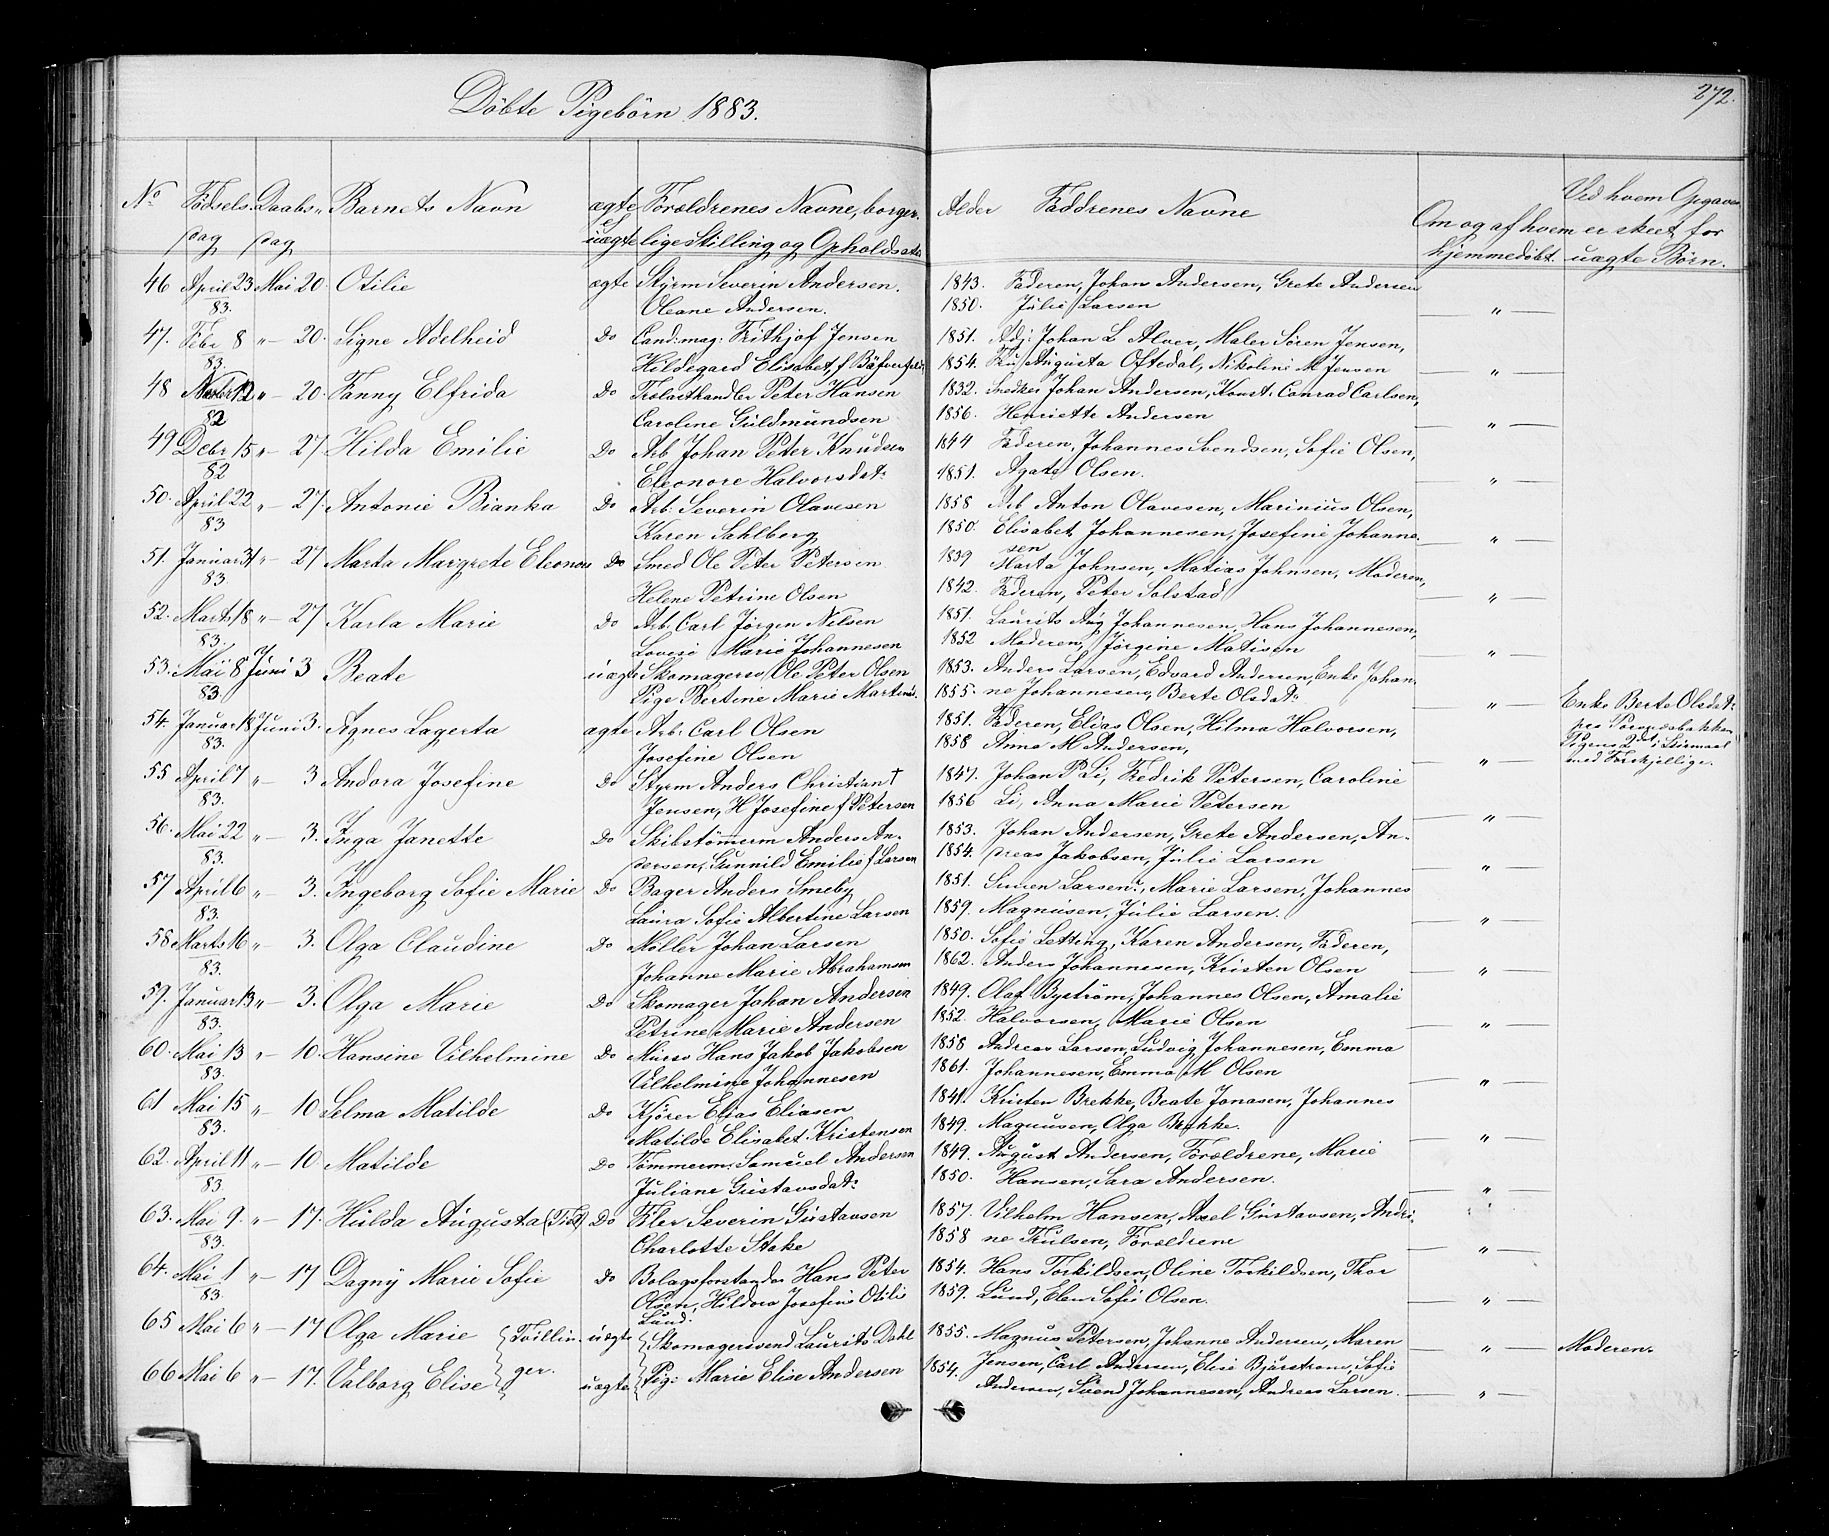 Döbte Pigebörn 1883.
272.
No Födsels dag Daabs dag Barnets Navn ægte el uægte Forældrenes Navne, borgerlige Stilling og Opholdssted Alder Faddrenes Navne Om og af hvem hjemmedöbt Ved hvem Opgaven er skeet for uægte Börn.
46 April 23 Mai 20. Otilie ægte Styrm Severin Andersen. 1843. Faderen, Johan Andersen, Grete Andersen
83. Oleane Andersen. 1850. Julie Larsen "
47. Febr 8 " 20. Signe Adelheid Do Cand: mag: Frithjof Jensen 1851. Adj: Johan L Alver, Maler Sören Jensen,
83. Hildegard Elisabet, f 1854. Fru Augusta Oftedal, Nikoline M Jensen "
48 12 " 20. Fanny Elfrida Do Hansen 1832. Snedker Johan Andersen, Konst: Conrad Carlsen,
82 Caroline Guldmundsen 1856. Henriette Andersen "
49 Debr 15 " 27. Hilda Emilie Do Arb Johan Peter Knudsen 1844 Faderen, Johannes Svendsen, Sofie Olsen,
82 Eleonore Halvorsdat: 1851. Agate Olsen. "
50. April 22 " 27. Antonie Bianka Do Arb: Severin Olavesen 1858 Arb Anton Olavesen, Marinius Olsen,
83 Karen Sahlberg 1850. Elisabet Johannesen, Josefine Johanne
51. Januar 31 " 27 Marta Margrete Eleonora Do Smed Ole Peter Petersen 1839 sen Marta Johnsen, Matias Johnsen, Moderen, "
83. Helene Petrine Olsen 1842. Faderen, Peter Solstad "
52. Marts 18 " 27 Karla Marie Do Arb. Carl Jörgen Nilsen 1851. Laurits Aug Johannesen, Hans Johannesen,
83. Lovise Marie Johannesen 1852 Moderen, Jörgine Matisen "
53. Mai 8 Juni 3 Beate uægte Skomagersv Ole Peter Olsen 1853. Anders Larsen, Edvard Andersen, Enke Johan
83. Pige Bertine Marie Martins. 1855. ne Johannesen, Berte Olsdat: " Enke Berte Olsdat:
54. Januar 18 Juni 3. Agnes Lagerta ægte Arb: Carl Olsen 1851. Faderen, Elias Olsen, Hilma Halvorsen,
83. Josefine Olsen 1858 Anna M Andersen, " Pigens 2det Leiermaal
med Forskjellige.
55 April 7 " 3 Andora Josefine Do Styrm Anders Christian † 1847. Johan P Li, Fredrik Petersen, Caroline
83. Jensen, H Josefine f Petersen 1856 Li, Anna Marie Petersen "
56. Mai 22 " 3. Inga Janette Do Skibstömmerm Anders An- 1853. Johan Andersen, Grete Andersen, An-
83. dersen, Gunnild Emilie f Larsen 1854. dreas Jakobsen, Julie Larsen "
57 April 6 " 3. Ingeborg Sofie Marie Do Bager Anders Smeby, 1851. Larsen, Marie Larsen, Johannes
83. Laura Sofie Albertine Larsen 1859. Magnusen, Julie Larsen. "
58 Marts 16 " 3. Olga Claudine Do Möller Johan Larsen 1850. Sofie Letting, Karen Andersen, Faderen,
83. Johanne Marie Abrahamsen 1862. Anders Johannesen, Kristen Olsen "
59. Januar 13 " 3. Olga Marie Do Skomager Johan Andersen 1849. Olaf Byström, Johannes Olsen, Amalie
83. Petrine Marie Andersen 1852. Halvorsen, Marie Olsen "
60. Mai 13 " 10. Hansine Vilhelmine Do Murer Hans Jakob Jakobsen 1858 Andreas Larsen, Ludvig Johannesen, Emma
83. Vilhelmine Johannesen 1861. Johannesen, Emma M Olsen "
61 Mai 15 " 10 Selma Matilde Do Kjörer Elias Eliasen 1841. Kristen Brekke, Beate Jonasen, Johannes
83. Matilde Elisabet Kristensen 1849. Magnusen, Olga Brekke. "
62. April 11 " 10 Matilde Do Tömmerm: Samuel Andersen 1849. August Andersen, Forældrene, Marie
83. Juliane Gustavsdat: 1850. Hansen, Sara Andersen. "
63. Mai 9. " 17. Hulda Augusta Do Severin Gustavsen 1857. Vilhelm Hansen, Axel Gustavsen, Andri
83. Charlotte Stake 1858 ne Trulsen, Forældrene "
64. Mai 1 " 17 Dagny Marie Sofie Do Bolagsforstander Hans Peter 1854. Hans Torkildsen, Oline Torkildsen, Thor
83. Olsen, Hildora Josefine Otilie 1859. Lund, Elen Sofie Olsen. "
Lund.
65 Mai 6 " 17 Olga Marie Tvillin uægte Skomagersvend Laurits Dahl 1855. Magnus Petersen, Johanne Andersen, Maren " Moderen.
66 Mai 6 " 17. Valborg Elise ger. uægte Pige Marie Elise Andersen 1854. Jensen, Carl Andersen, Elise Bjurström, Sofie
Andersen, Svend Johannesen, Andreas Larsen. "